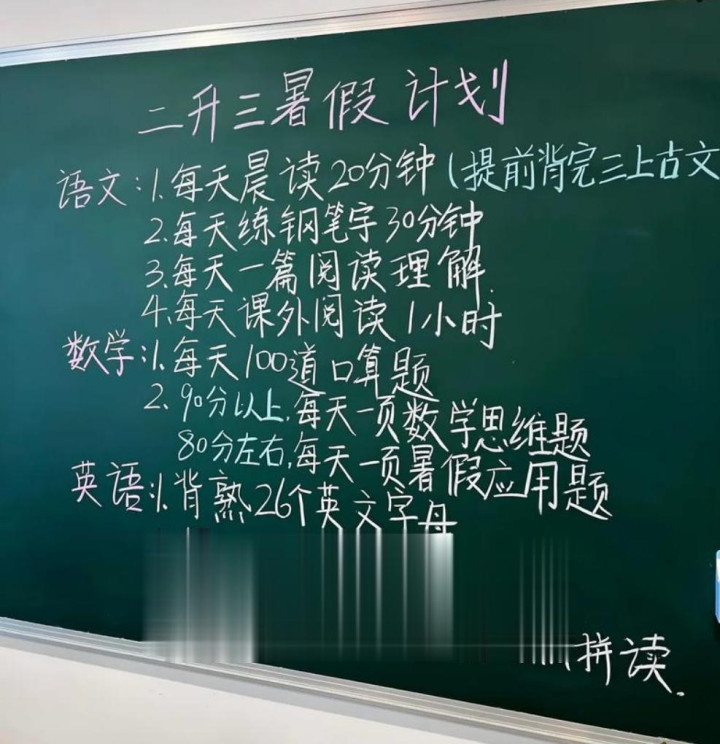 二升三暑假计划
语文:1.每天晨读20分钟(提前背完三上古文
2.每天练钢笔字30分钟
3.每天一篇阅读理解.
4.每天课外阅读1小时
数学:1.每天100道口算题
2.90分以上,每天一页数学思维题
80分左右,每天一页暑假应用题
英语:1.背熟26个英文字母
拼读.